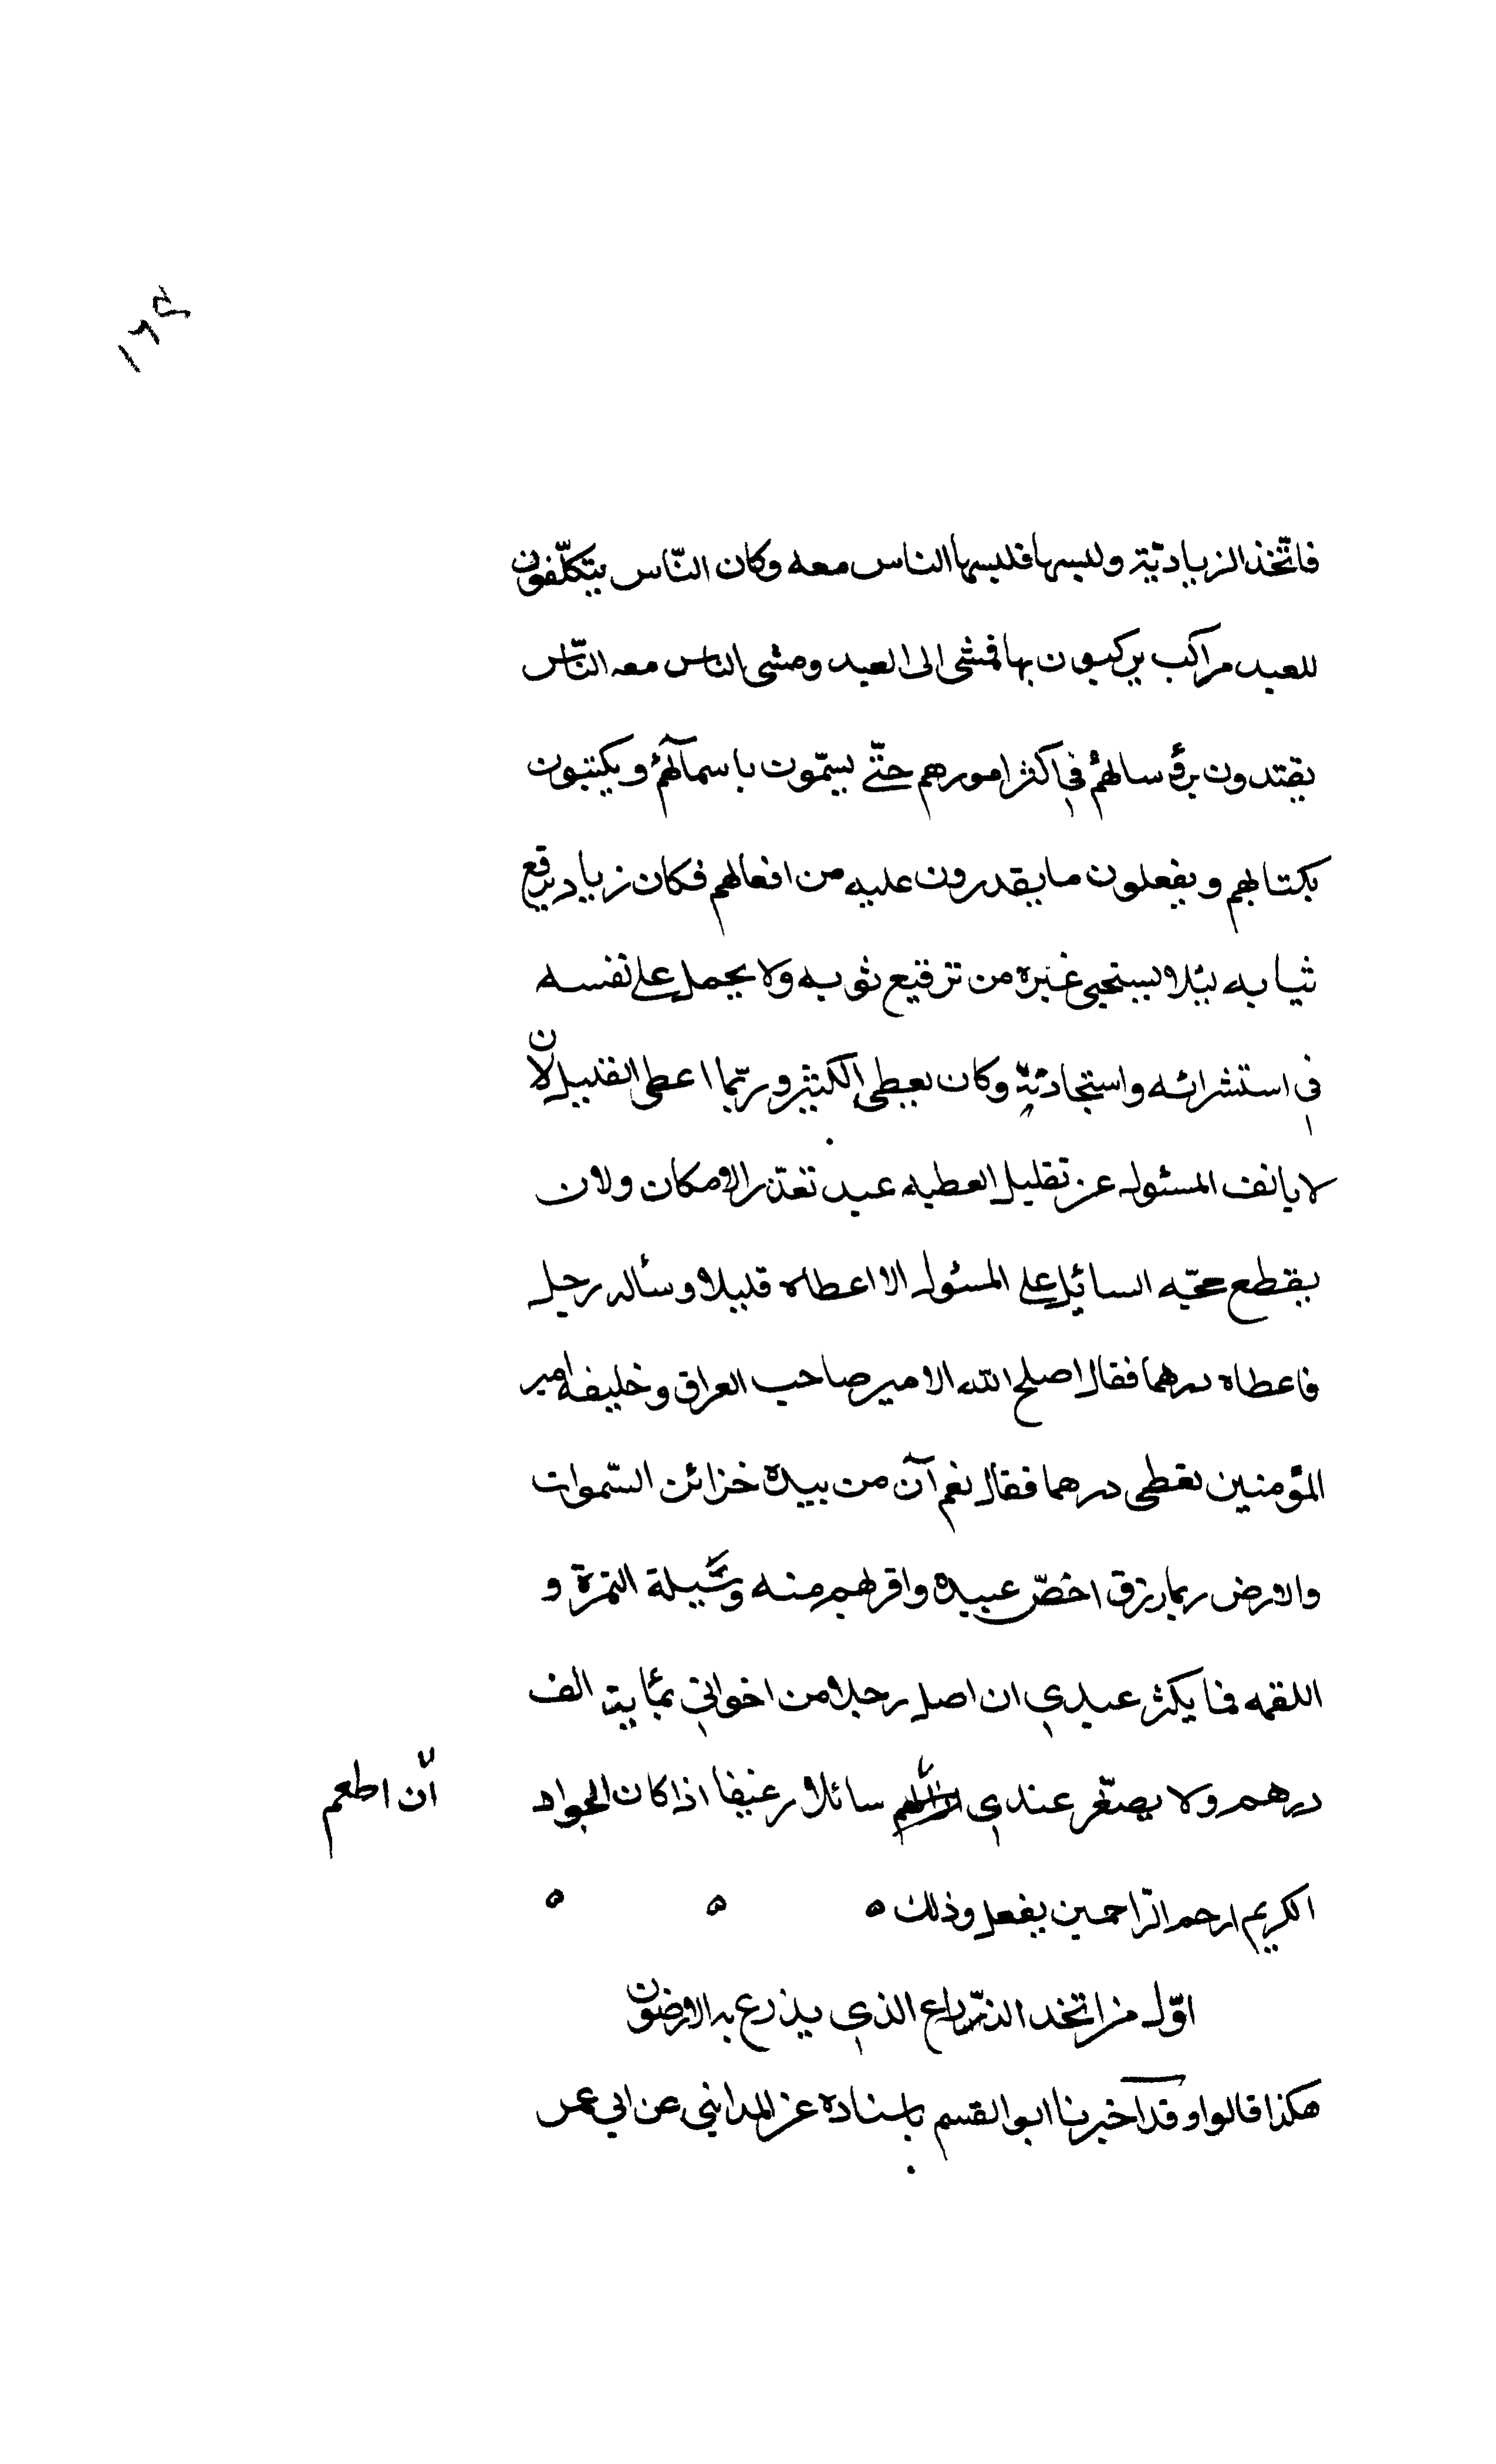 ١٦٤
فاتّخذ الزياديّة ولبسها فلبسها الناس معه وكان النّاس يتكلّفون
للعيد مراكب يركبون بها فمشى الى العيد ومشى الناس معه النّاس
يقتدون برؤسائهم في اكثر امورهم حتّى يسمّون باسمآئهم ويكتبون
بكتابهم ويفعلون ما يقدرون عليه من افعالهم فكان زياد يرقع
ثيابه ليلا يستحيى غيره من ترقيع ثوبه ولا يحمل على نفسه
في استشرائه واستجادته وكان يعطى الكثير وربّما اعطى القليل لان
لا يانف المسئول عن تقليل العطيه عند تعذّر الامكان ولان
يقطع حجّه السائل على المسئول الا اعطاه قليلا وسأله رجل
فاعطاه درهما فقال اصلح الله الامير صاحب العراق وخليفه امير
المؤمنين يعطى درهما فقال نعم آن من بيده خزائن السّموات
والارض ربما رزق اخصّ عبيده واقربهم منه وسيلة التمرة و
اللقمه فما يكثر عندي ان اصل رجلا من اخواني بمايه الف
درهم ولا يصغّر عندي سائلا رغيفا اذا كان الجواد
انّ اطعم
الكريم ارحم الرّاحمين يفعل وذلك ه ه ه
اوّل من اتخذ الذّراع الذي يذرع به الارضون
هكذا قالوا وقد اخبرنا ابو القسم باسناده عن المدايني عن ابي عمر